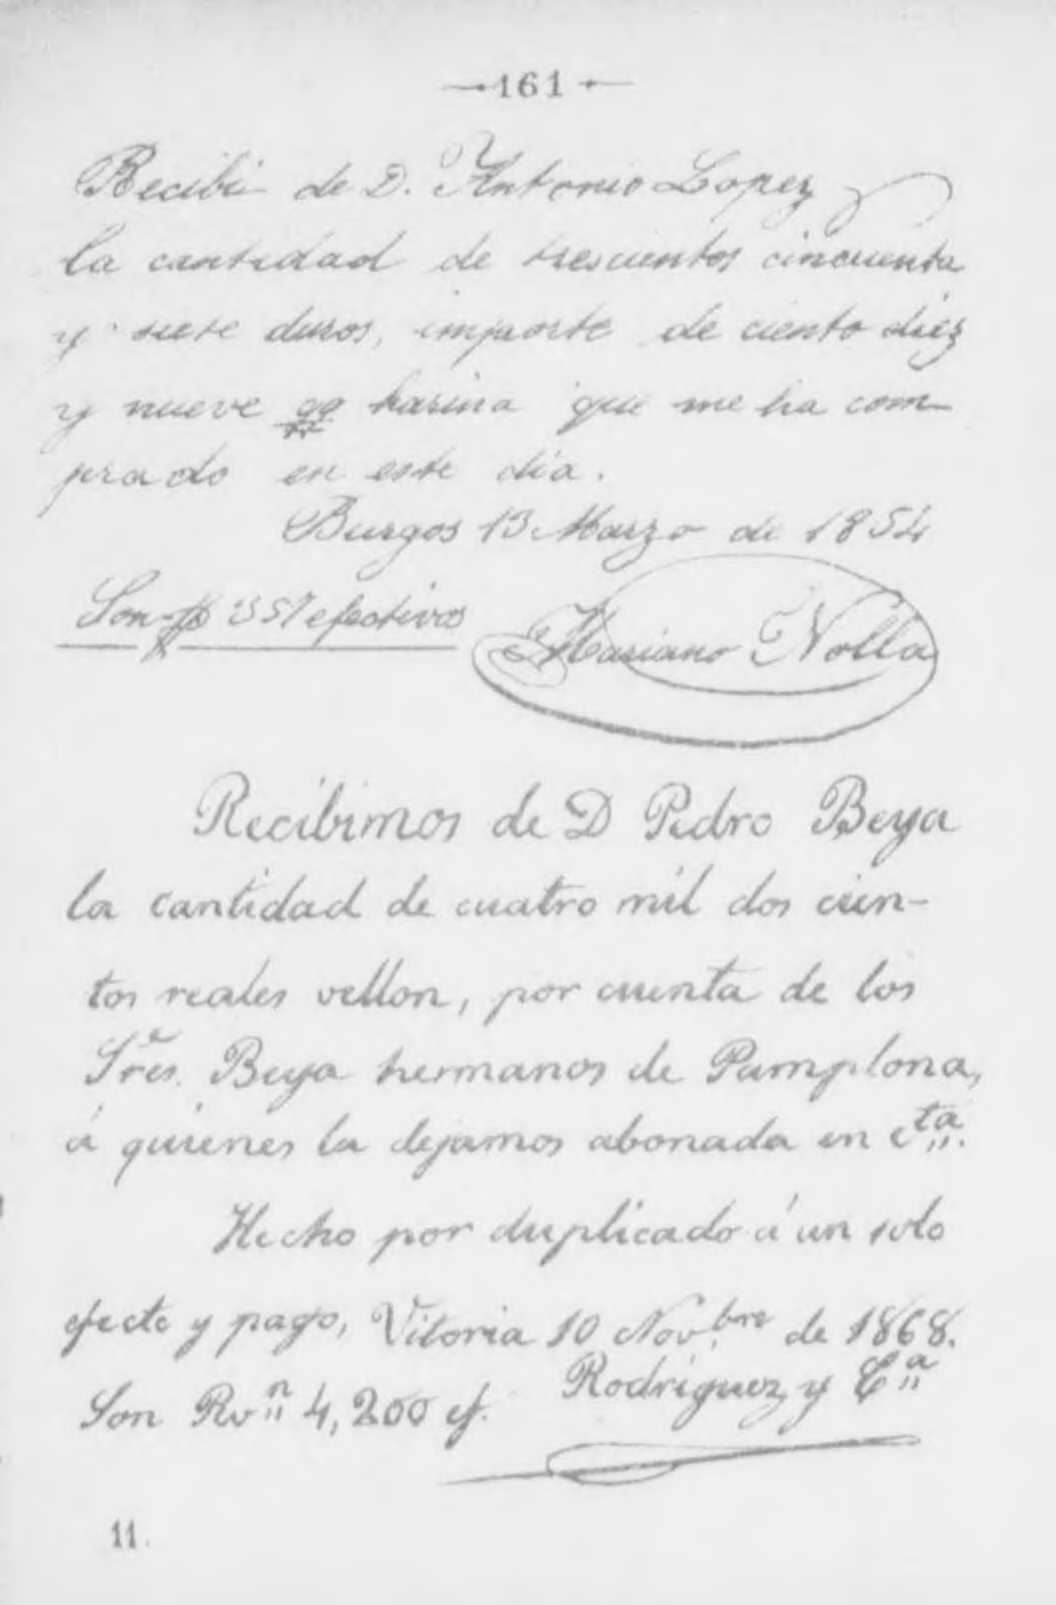 161
Recibi de D. Antonio Lopez
la cantidad de trescientos cincuenta
y siete duros, importe de ciento diez
y nueve qq harina que me ha com
prado en este dia.
Burgos 13 Marzo de 1854
Son 357 efectivos
Mariano Nolla
Recibimos de D Pedro Beya
la cantidad de cuatro mil dos cien-
tos reales vellon, por cuenta de los
Sres. Beya hermanos de Pamplona,
á quienes la dejamos abonada en cta.
Hecho por duplicado á un solo
efecto y pago, Vitoria 10 Novbre de 1868.
Son Rvn 4,200 ef.
Rodriguez y Ca
11.